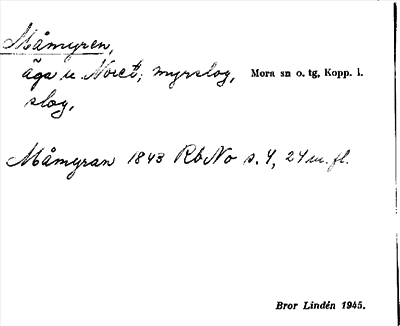 Måmyren,
äga u. Noret; myrslog, Mora sn o. tg, Kopp. l.
slog,
Måmyran 1843 Rb No s. 4, 24 m. fl.
Bror Lindén 1945.